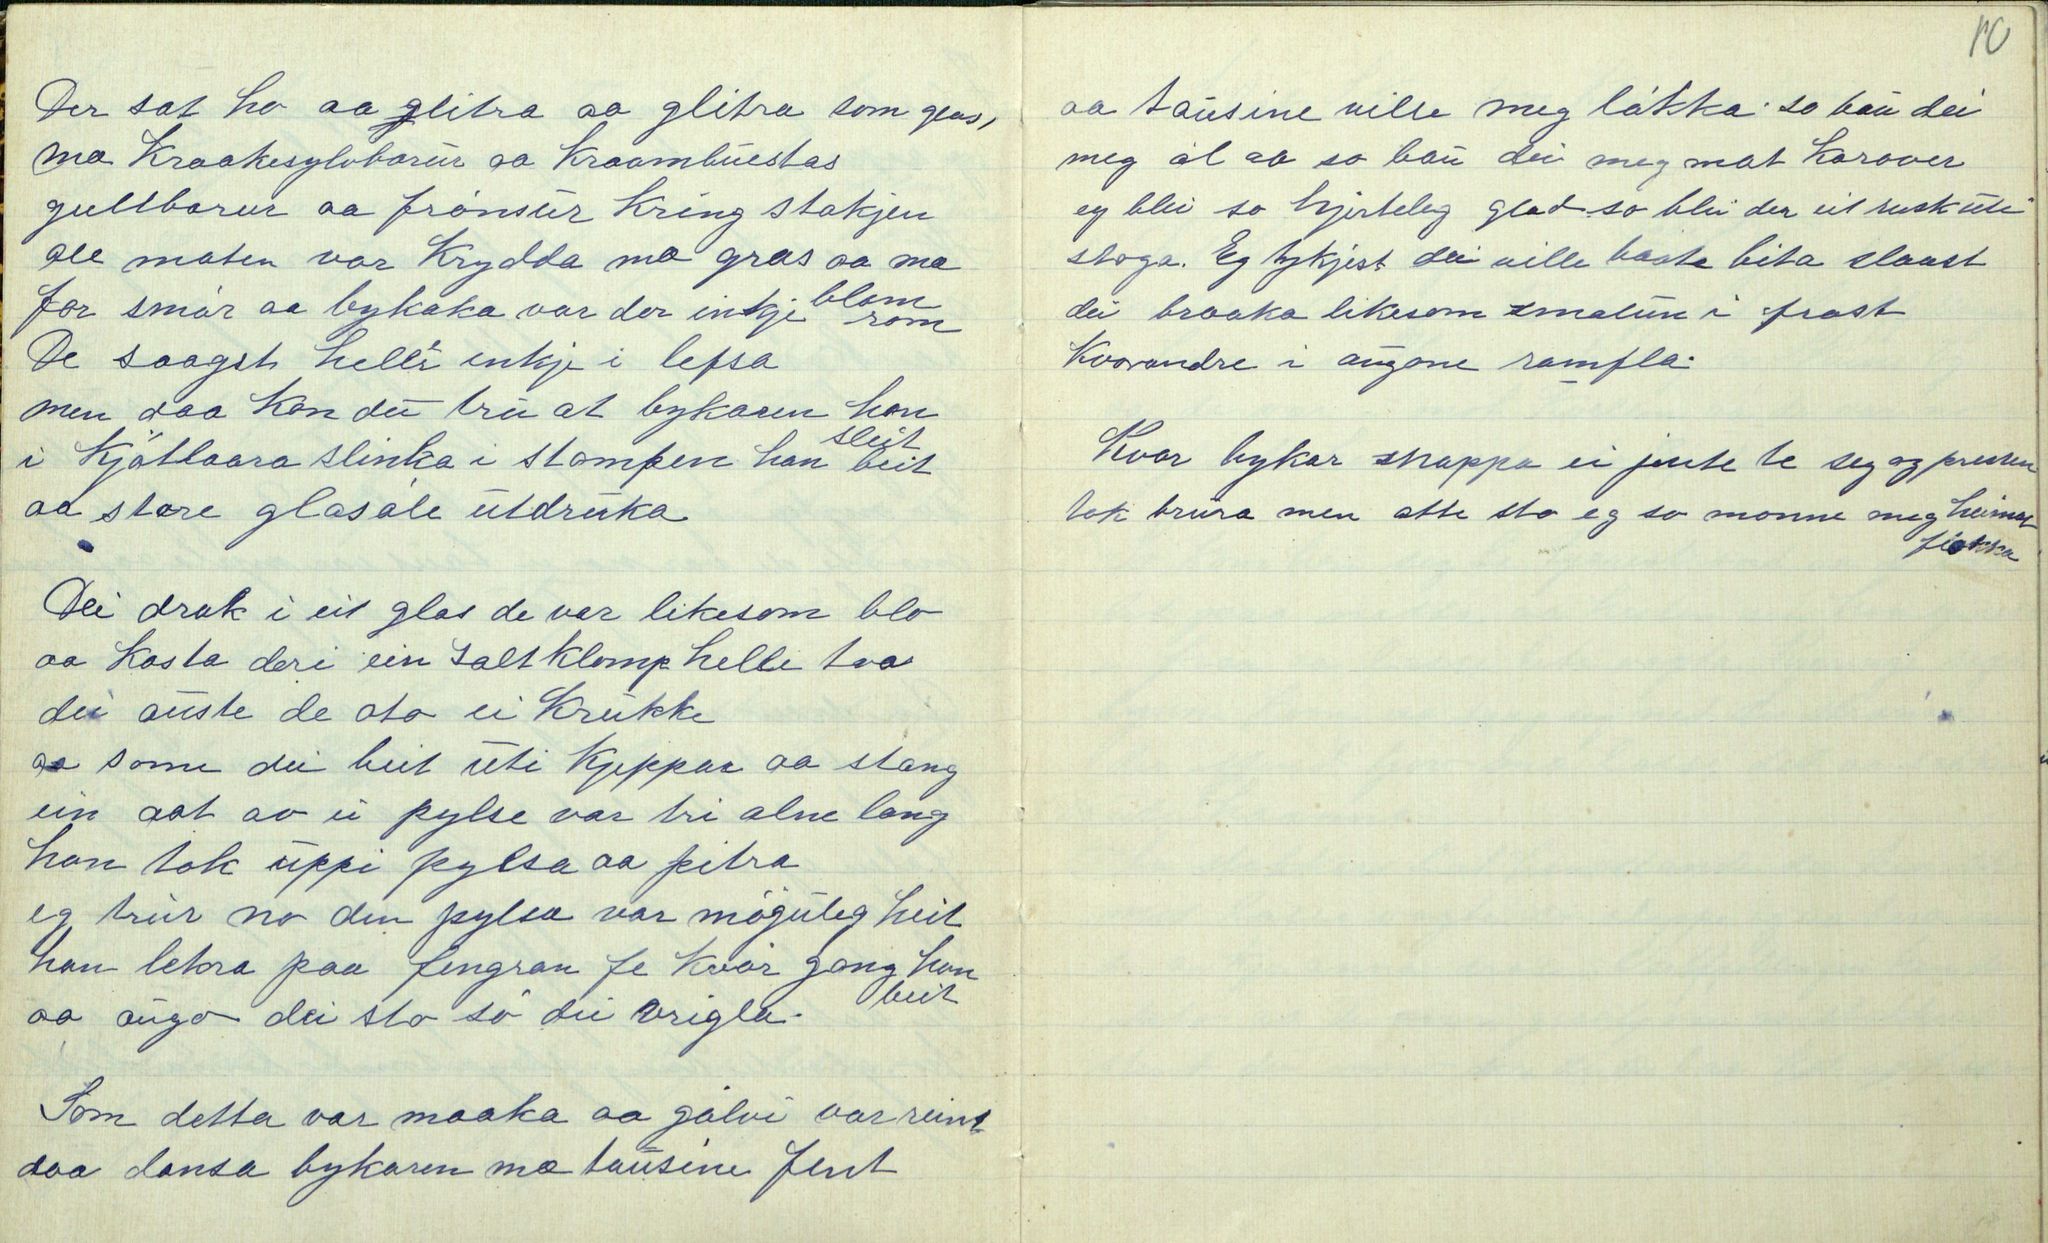 Der sat ho aa glitra aa glitra som glas,
mæ Kraakesylvborur aa Kraambuestas
gullborur aa fronsur kring stakjen
all maten var krydda mæ gras aa mæ blom
for smòr aa bykaka var der inkje rom
De saagst hell'i inkje i lefsa
men daa kan du tru at bykaren han sleit
i kjötlaara slinka i stompen han beit
aa store glasòle utdruka

Dei drak i eit glas de var likesom blo
aa kasta deri ein saltklomp helli tvo
dei auste de oto ei krukke
aa some dei beit uti kjeppar aa stong
ein aat av ei pylse var tri alne long
han tok uppi pylsa aa pitra
eg trur no den pylsa var mòguleg heit
han letra paa fengran fe kvòr gong han beit
aa augo dei sto so dei vrigla.

Som detta var maaka aa gòlvi var reins
daa dansa bykaren mæ tausine fent
10
aa tausine ville meg lòkka. so bau dei
meg òl aa so bau dei meg mat Korover
eg blei so hjerteleg glad so blei der eit rusk uti
stoga. Eg tykjest dei ville baate bita slaast
dei braaka likesom smalun i frost
Kvorandre i augone rampla.

Kvor bykar snappa ei jente te seg og presten
tok brura men atte sto eg so monne meg heimat
fjokka